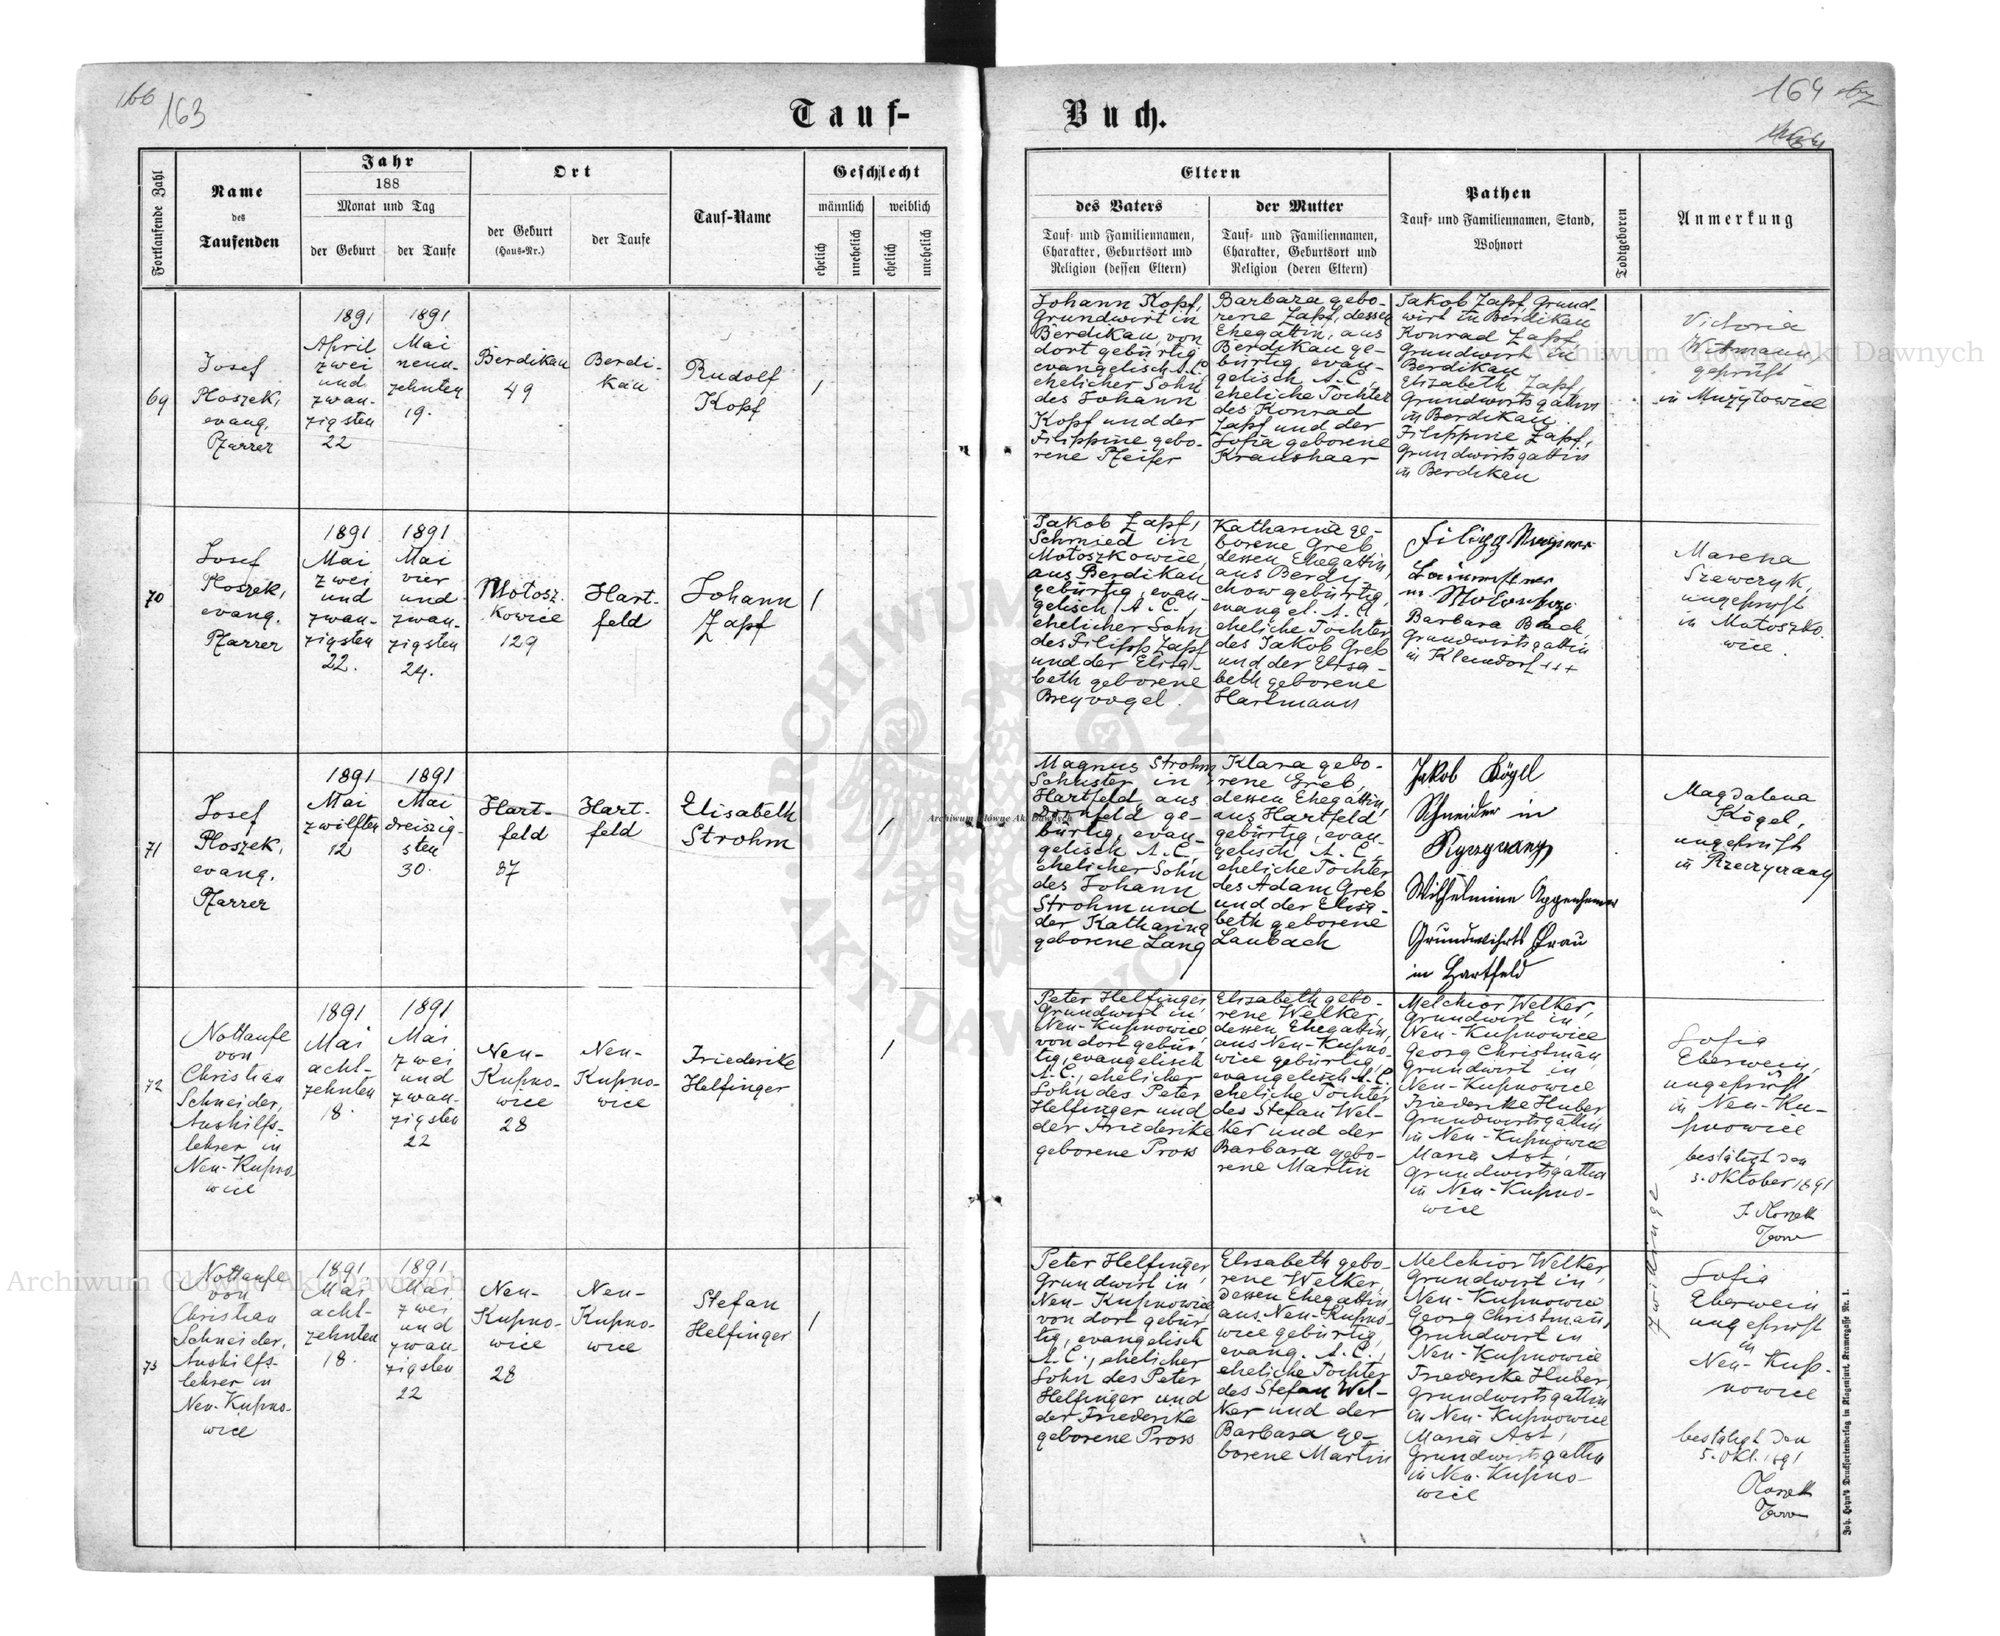 166
163
Tauf-
Buch.
164
Fortlaufende Zahl
Name
des
Taufenden
Jahr
188
Monat und Tag
der Geburt
der Taufe
Ort
der Geburt
(Haus-Nr.)
der Taufe
Tauf-Name
Geschlecht
männlich
weiblich
ehelich
unehelich
ehelich
unehelich
Eltern
des Vaters
Tauf- und Familiennamen,
Charakter, Geburtsort und
Religion (dessen Eltern)
der Mutter
Tauf- und Familiennamen,
Charakter, Geburtsort und
Religion (deren Eltern)
Pathen
Tauf- und Familiennamen, Stand,
Wohnort
Todtgeboren
Anmerkung
69
Josef
Ploszek,
evang.
Pfarrer
1891
April
zwei
und
zwan-
zigsten
22
1891
Mai
neun-
zehnten
19.
Berdikau
49
Berdi-
kau
Rudolf
Kopf
1
Johann Kopf,
Grundwirt in
Berdikau, von
dort gebürtig
evangelisch A.C.
ehelicher Sohn
des Johann
Kopf und der
Filippine gebo-
rene Pfeifer
Barbara gebo-
rene Zapf, dessen
Ehegattin, aus
Berdikau ge-
bürtig evan-
gelisch A.C.,
eheliche Tochter
des Konrad
Zapf und der
Sofia geborene
Kraushaar
Jakob Zapf, Grund-
wirt in Berdikau
Konrad Zapf,
Grundwirt in
Berdikau
Elisabeth Zapf,
Grundwirtsgattin
in Berdikau
Filippine Zapf,
Grundwirtsgattin
in Berdikau
Victoria
geprüft
in Mużyłowice
70
Josef
Ploszek,
evang.
Pfarrer
1891
Mai
zwei
und
zwan-
zigsten
22.
1891
Mai
vier
und
zwan-
zigsten
24.
Motosz-
kowice
129
Hart-
feld
Johann
Zapf
1
Jakob Zapf,
Schmied in
Motoszkowice,
aus Berdikau
gebürtig, evan-
gelisch, A.C.,
ehelicher Sohn
des Filipp Zapf
und der Elisa-
beth geborene
Breyvogel
Katharina ge-
borene Greb
dessen Ehegattin,
aus Berdy-
chow gebürtig,
evangel. A.C.
eheliche Tochter
des Jakob Greb
und der Elisa-
beth geborene
Hartmann
in
Barbara Bach,
Grundwirtsgattin
in Kleindorf +++
Marena
Szewczyk,
ungeprüft
in Motoszko-
wice.
71
Josef
Ploszek,
evang.
Pfarrer
1891
Mai
zwölften
12
1891
Mai
dreiszig-
sten
30.
Hart-
feld
37
Hart-
feld
Elisabeth
Strohm
1
Magnus Strohm
Schuster in
Hartfeld aus
Dornfeld ge-
bürtig, evan-
gelisch A.C.
ehelicher Sohn
des Johann
Strohm und
der Katharina
geborene Lang
Klara gebo-
rene Greb,
dessen Ehegattin,
aus Hartfeld
gebürtig, evan-
gelisch A.C.
eheliche Tochter
des Adam Greb
und der Elisa-
beth geborene
Laubach
Jakob Kögel
Schneider in
Wilhelmine
Grundwirts Frau
in Hartfeld
Magdalena
Kögel,
ungeprüft
in
72
Nottaufe
von
Christian
Schneider,
Aushilfs-
lehrer in
Neu-Kupno-
wice
1891
Mai
acht-
zehnten
18.
1891
Mai
zwei
und
zwan-
zigsten
22
Neu-
Kupno-
wice
28
Neu-
Kupno-
wice
Friederike
Helfinger
1
Peter Helfinger,
Grundwirt in
Neu-Kupnowice
von dort gebür-
tig, evangelisch
A.C., ehelicher
Sohn des Peter
Helfinger und
der Friederike
geborene Pross
Elisabeth gebo-
rene Welker,
dessen Ehegattin,
aus Neu-Kupno-
wice gebürtig,
evangelisch A.C.
eheliche Tochter
des Stefan Wel-
ker und der
Barbara gebo-
rene Martin
Melchior Welker,
Grundwirt in
Neu-Kupnowice
Georg Christman,
Grundwirt in
Neu-Kupnowice
Friederike Huber
Grundwirtsgattin
in Neu-Kupnowice
Maria Ast,
Grundwirtsgattin
in Neu-Kupno-
wice
Sofia
Eberwein,
ungeprüft
in Neu-Ku-
pnowice
bestätigt den
5. Oktober 1891
Zwillinge
73
Nottaufe
von
Christian
Schneider,
Aushilfs-
lehrer in
Neu-Kupno-
wice
1891
Mai
acht-
zehnten
18.
1891
Mai
zwei
und
zwan-
zigsten
22
Neu-
Kupno-
wice
28
Neu-
Kupno-
wice
Stefan
Helfinger
1
Peter Helfinger
Grundwirt in
Neu-Kupnowice
von dort gebür-
tig, evangelisch
A.C., ehelicher
Sohn des Peter
Helfinger und
der Friederike
geborene Pross
Elisabeth gebo-
rene Welker,
dessen Ehegattin
aus Neu-Kupno-
wice gebürtig,
evang. A.C.,
eheliche Tochter
des Stefan Wel-
ker und der
Barbara ge-
borene Martin
Melchior Welker,
Grundwirt in
Neu-Kupnowice
Georg Christman,
Grundwirt in
Neu-Kupnowice
Friederike Huber,
Grundwirtsgattin
in Neu-Kupnowice
Maria Ast,
Grundwirtsgattin
in Neu-Kupno-
wice
Sofia
Eberwein
ungeprüft
in
Neu-Kup-
nowice
bestätigt den
5. Okt. 1891
Joh. Heyn's Drucksortenverlag in Klagenfurt, Kramergasse Nr. 1.
Archiwum Główne Akt Dawnych
Archiwum Główne Akt Dawnych
Archiwum Główne Akt Dawnych